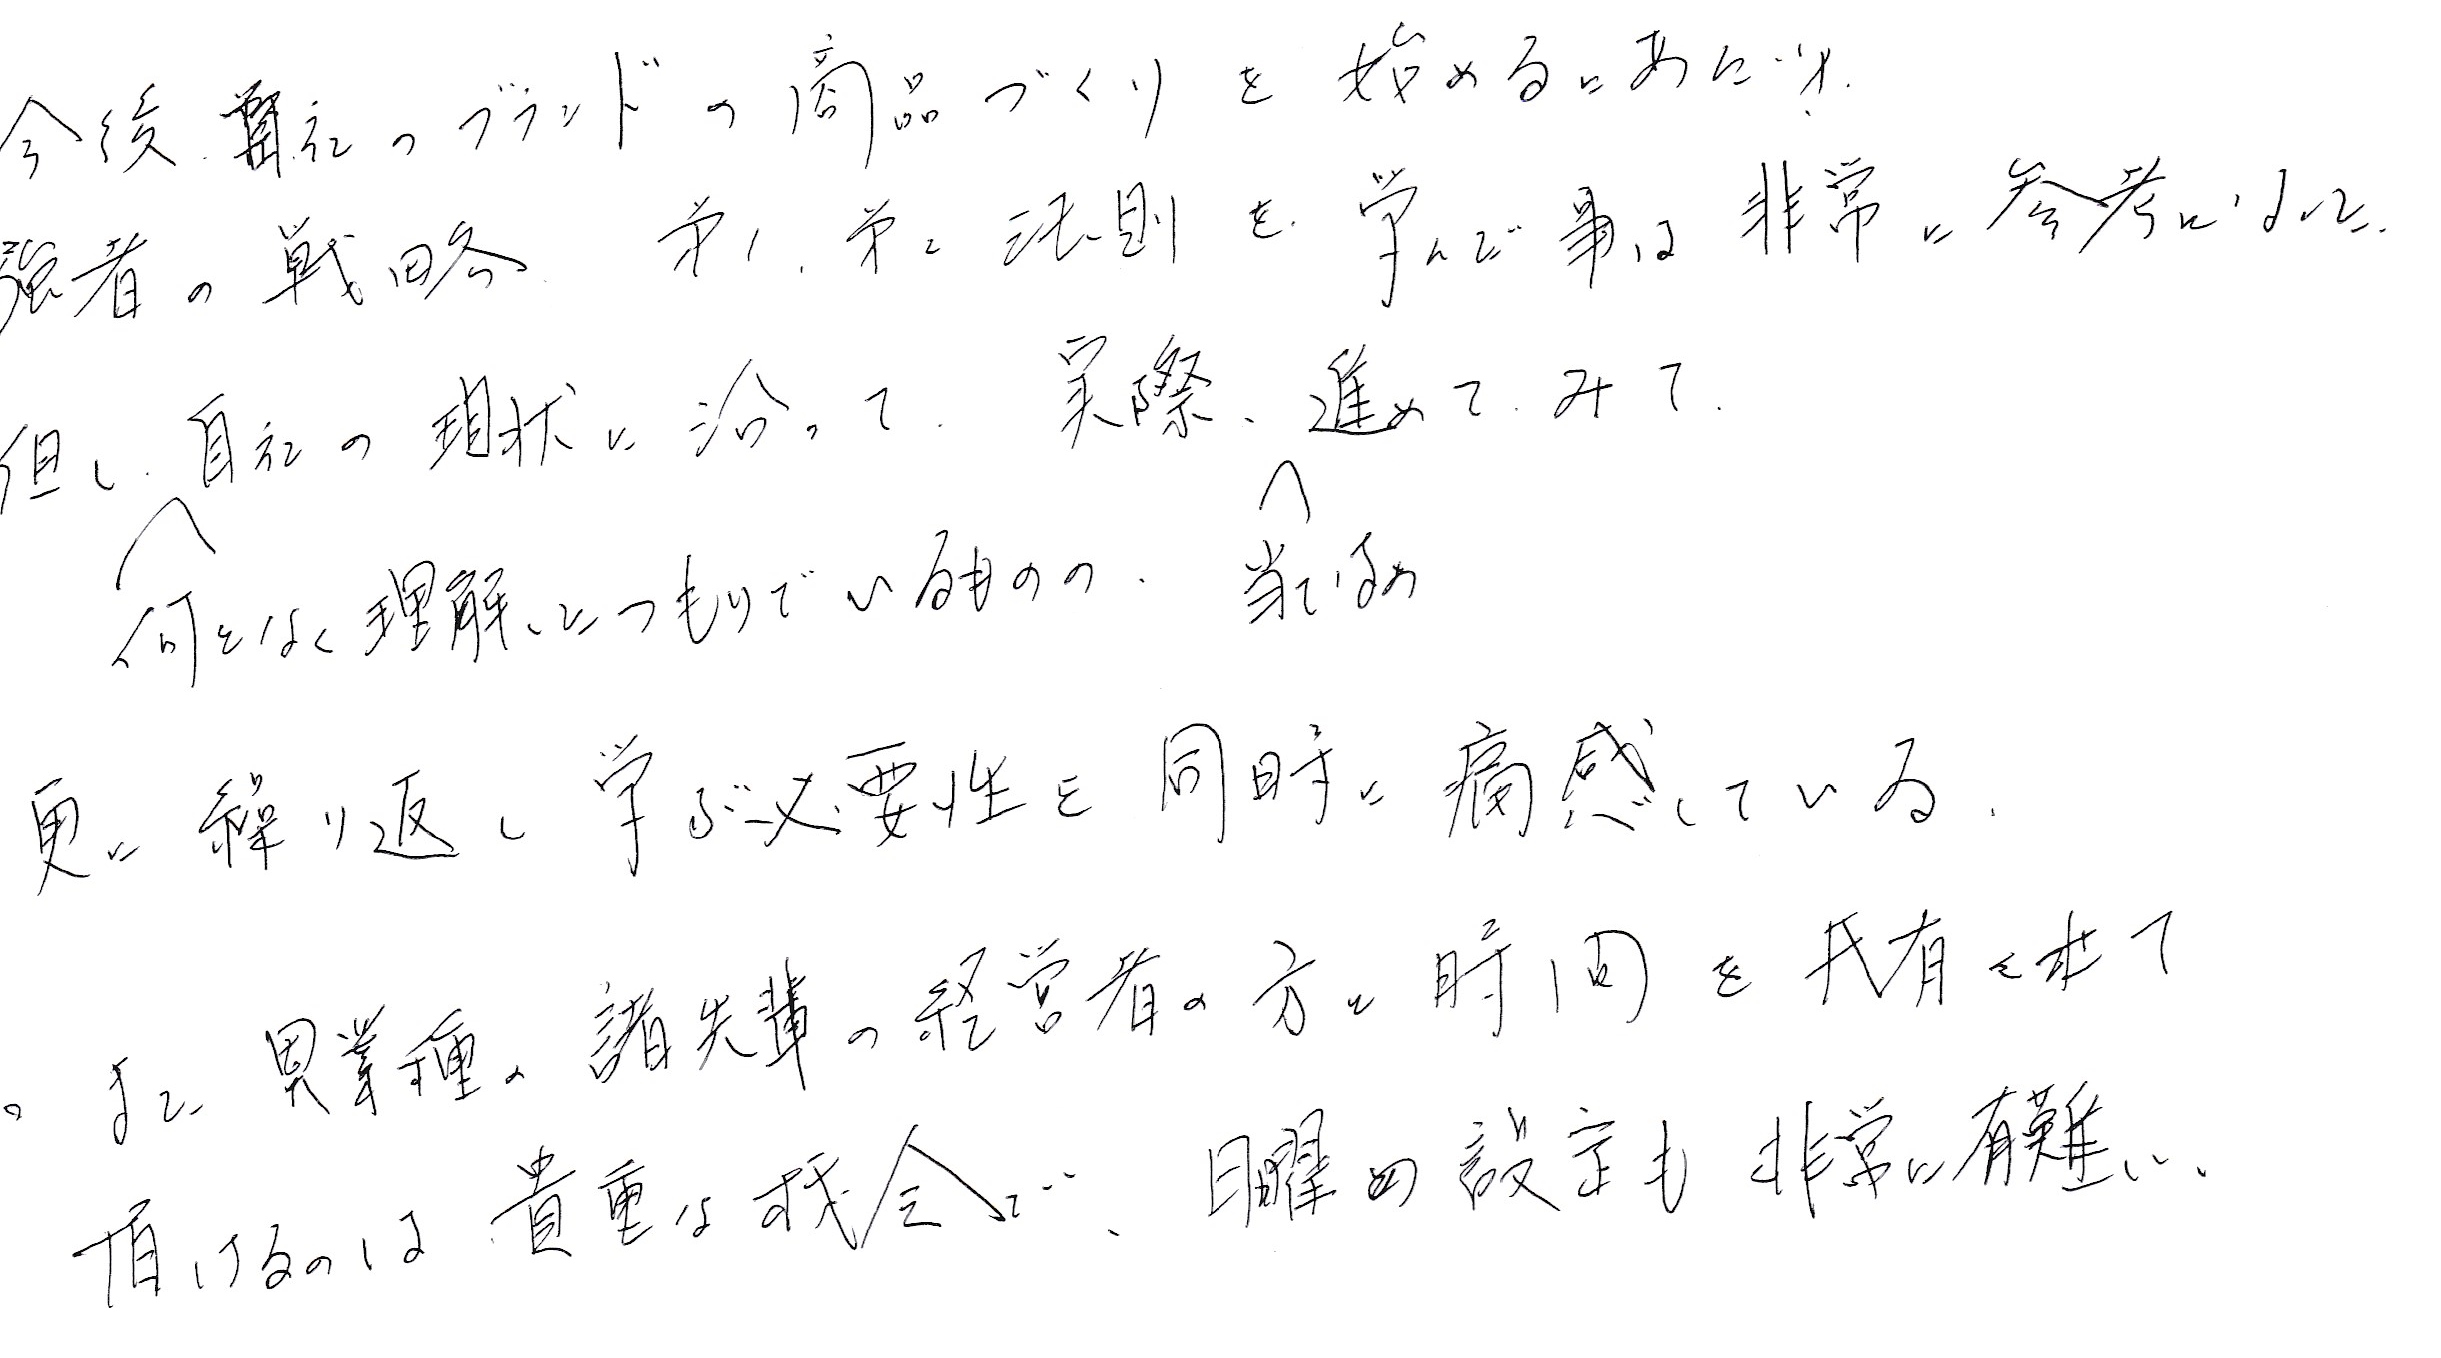 今後、自社のブランドの商品づくりを始めるにあたり、
強者の戦略、第1、第2法則を、学んだ事は非常に参考になった。
但し、自社の現状に沿って、実際、進めてみて、
何となく理解したつもりでいるものの、当てはめ
更に繰り返し学ぶ必要性を同時に痛感している。
。また異業種の諸先輩の経営者の方と時間を共有させて
頂けるのは貴重な機会で、日曜の設定も非常に有難い、